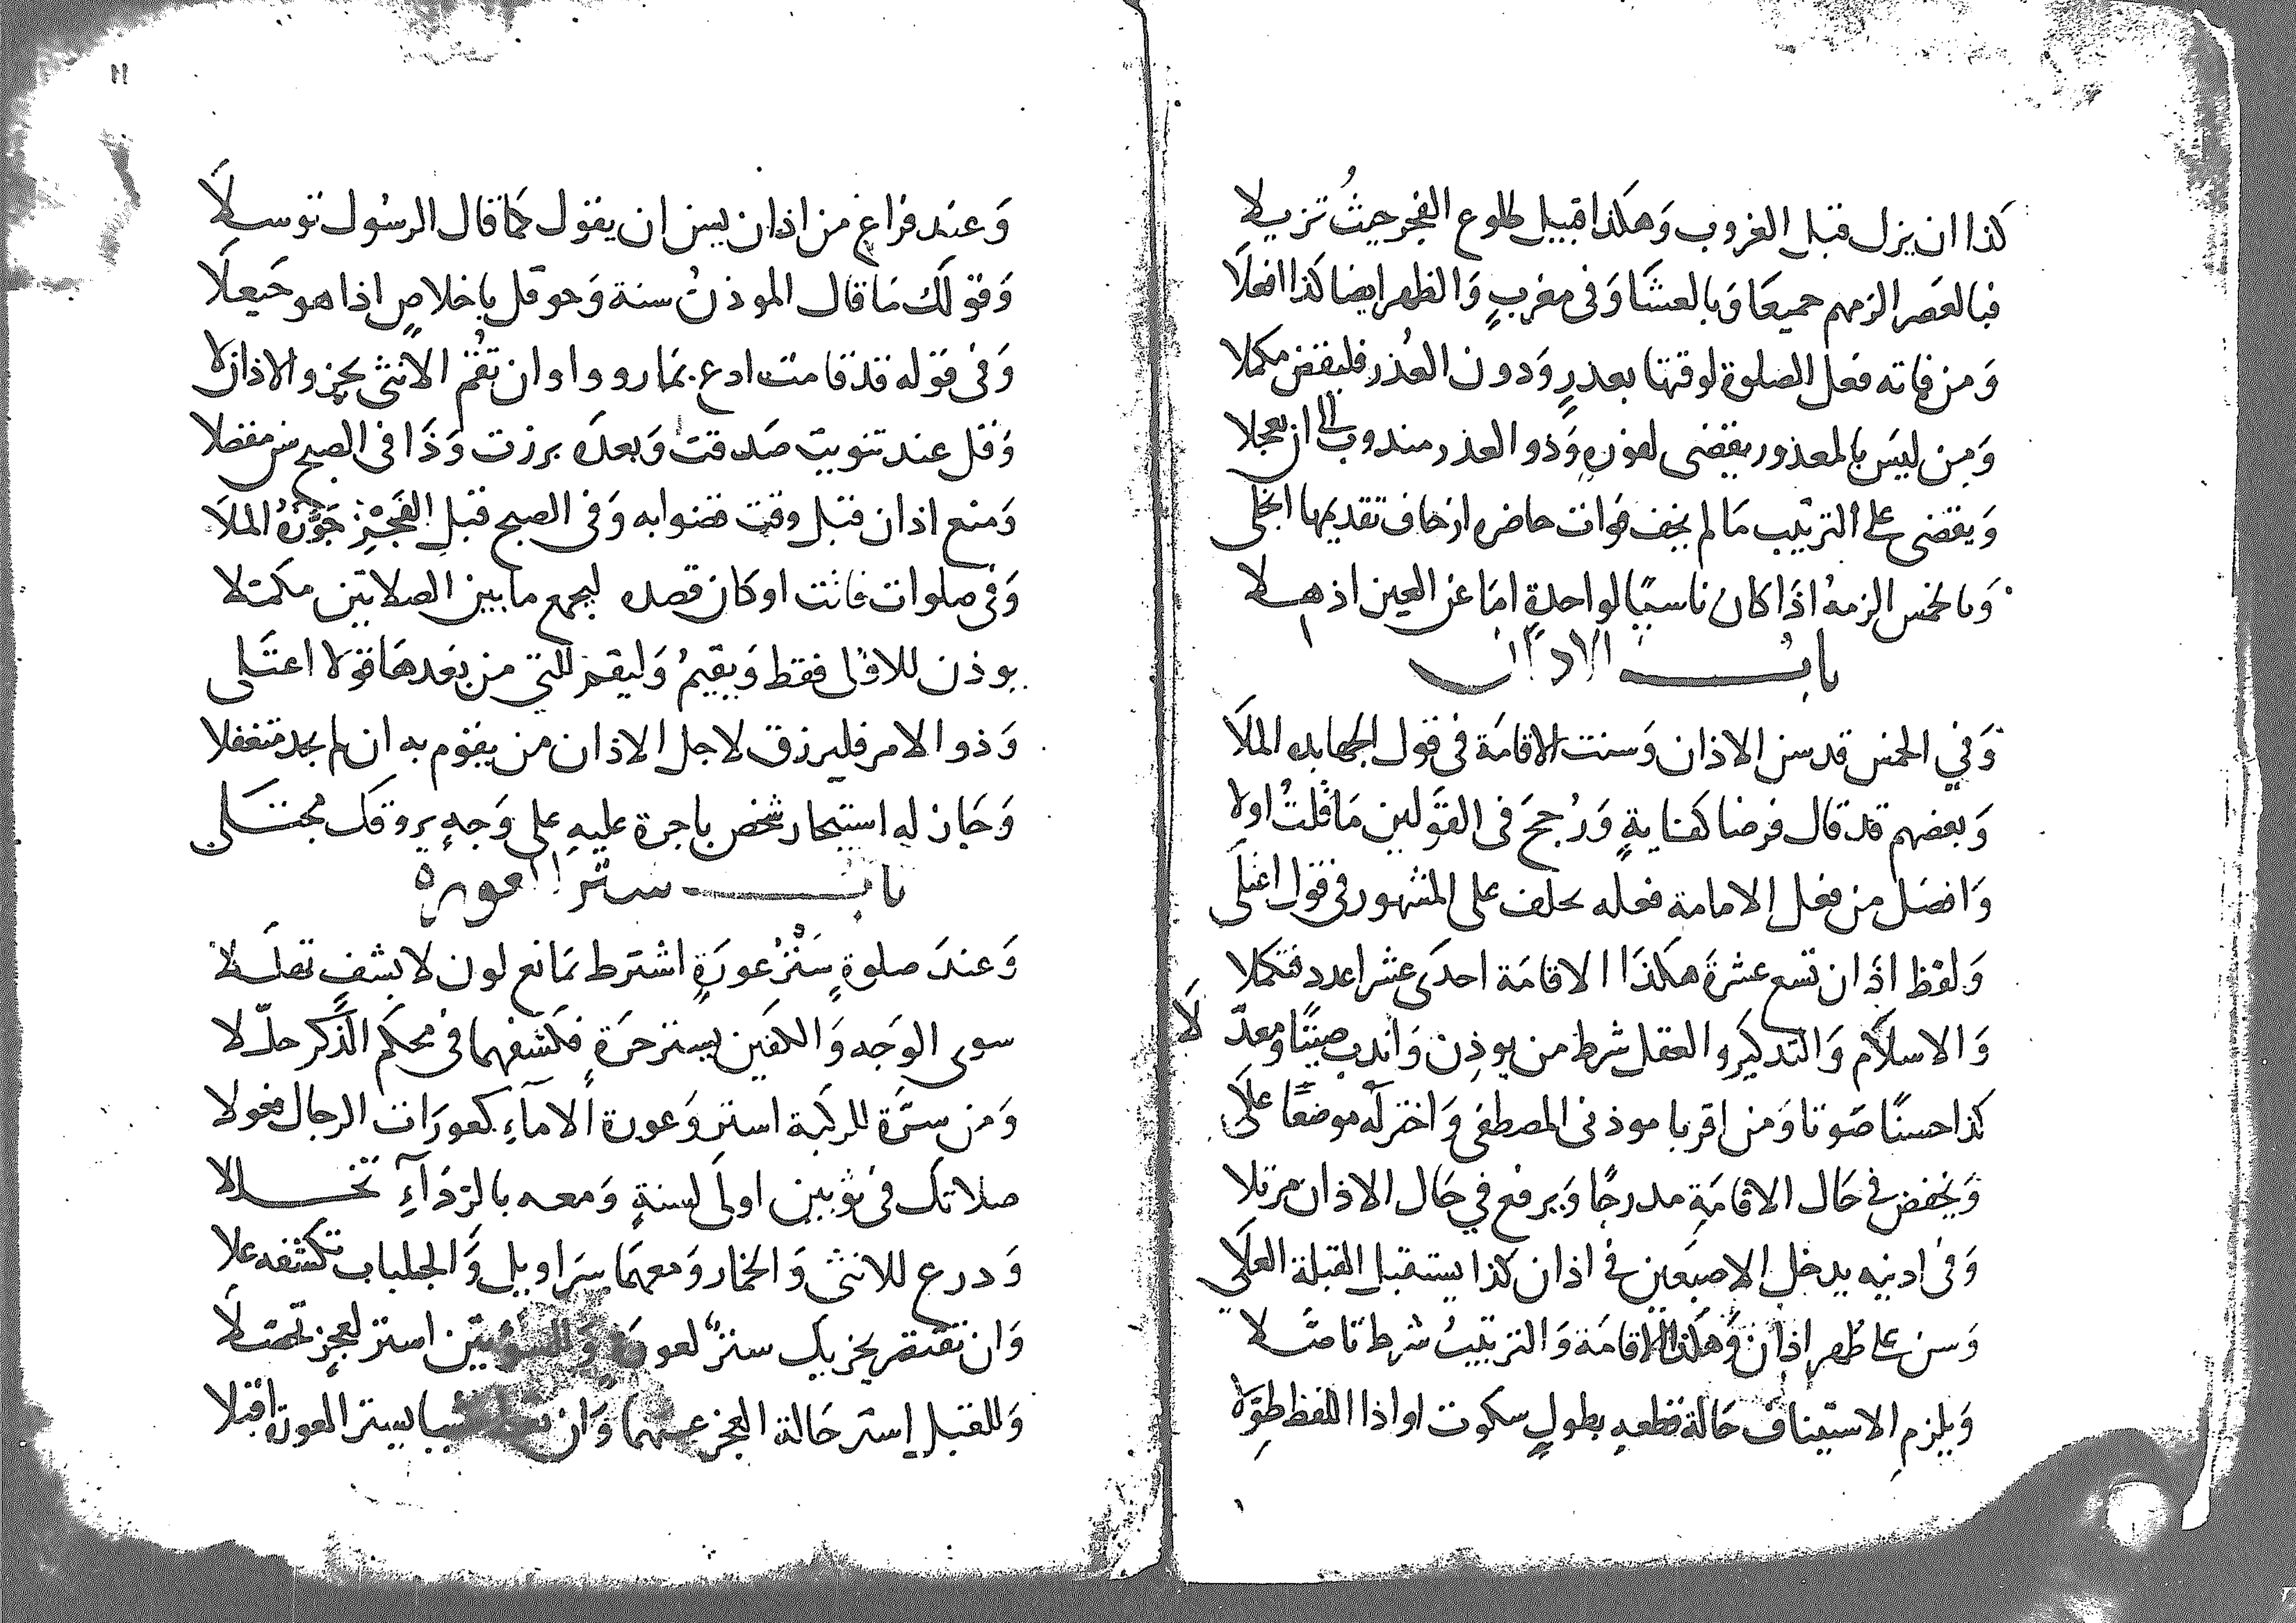 كذا ان يزل قبل الغروب وَهكذا قبيل طلوع الفجر حيثُ تزيلا
فبالعَصر الزمهم جميعَا وَبالعشَا وَفى مغربٍ وَالظهر ايضا كذا افعلَا
وَمن فاته فعل الصلوة لوقتها بعذرٍ وَدون العُذر فليقض مكملا
وَمن ليسَ بالمعذور يقضى لفوره وَذو العذر مندوب الى ان يعجلا
وَيقضى على الترتيب مَا لم يخف فوات حاضره ان خاف تقديمها انجلى
وَبالخمس الزمهُ اذَا كان ناسيًا لواحدةٍ امَا عن العين اذهلا
باب الاذان
وَفي الخمس قد سن الاذان وَسنت الاقامَة فى قول الجهابده الملَا
وَبعضهم قد قال فرضا كفايةٍ وَرُجحَ فى القَولين مَا قلتُ اولا
وَافضل من فعل الامامة فعله بخلف على المشهور فى قول اعتلَى
وَلفظ اذَان تسع عشرةَ هكذَا الاقامَة احدَى عشر اعدد فتكملا
وَالاسلَام وَالتذكير والعقل شرط من يوذن وَاندب صيّتًا ومعدّلَا
كذا حسنًا صَوتا وَمن اقربا موذنى المصطفى وَاختر له موضعًا علَى
وَيخفض في حَال الاقامَةِ مدرجًا وَيرفع في حَال الاذان مرتلا
وَفى اذنيه يدخل الاصبَعين في اذان كذا يستقبل القبلة العلَى
وَسن على طهر اذان وَهكذا الاقامَة وَالترتيبُ شرط تاصَّلا
وَيلزم الاستيناف حَالة قطعهِ بطولٍ سكوت او اذا اللفظ طوّلا
١١
وَعند فراغ من اذان يسن ان يقول كما قال الرسُول توسلَا
وَقولك مَا قال الموذنُ سنة وَحوقل باخلاصٍ اذا هو حَيعلَا
وَفى قوله قد قامت ادع بمَا رووا وان تقُم الانثى يجز والاذان لا
وَقل عند تثويب صَدقت وَبعدَه بررت وَذَا فى الصبح سن مفضلا
وَمنع اذان قبل وقت قضوا به وَفى الصبح قبل الفَجرِ جَوَّزهُ الملَا
وَفى صلوات فاتت او كان قصده ليجمع ما بين الصلاتين مكمّلا
يوذن للاوْلى فقط وَيقيمُ وَليقم للتي من بعدهَا قولا اعتلى
وَذو الامر فليرزق لاجل الاذان من يقوم به ان لم يجد متنفلا
وَجَازَ له استيجار شخص باجرة عليهِ على وَجهٍ يروقك مجتلى
باب ستر العورة
وَعندَ صلوةٍ سَترُ عورَةٍ اشترط بمَانع لون لا يشف تقلّلا
سوى الوَجه وَالكفين يستر حرَةٍ فكشفهما فى محكَم الذكر حلّلا
وَمن سرَّة للركبة استر وَعورة الامآءِ كعورَات الرجال فحولا
صلاتك فى ثوبين اولَى لسنةٍ وَمعه بالرّدَآءِ تخللا
وَدرع للانثى وَالخمار وَمعهَا سرَاويل وَالجلباب تكشفه علا
وَان تقتصر يجزيك ستر لعورة وَللسوءتين استر لعجزٍ تحمّلَا
وَللقبل استر حَالة العجز عنهما وَان بستر العورة اقبلا